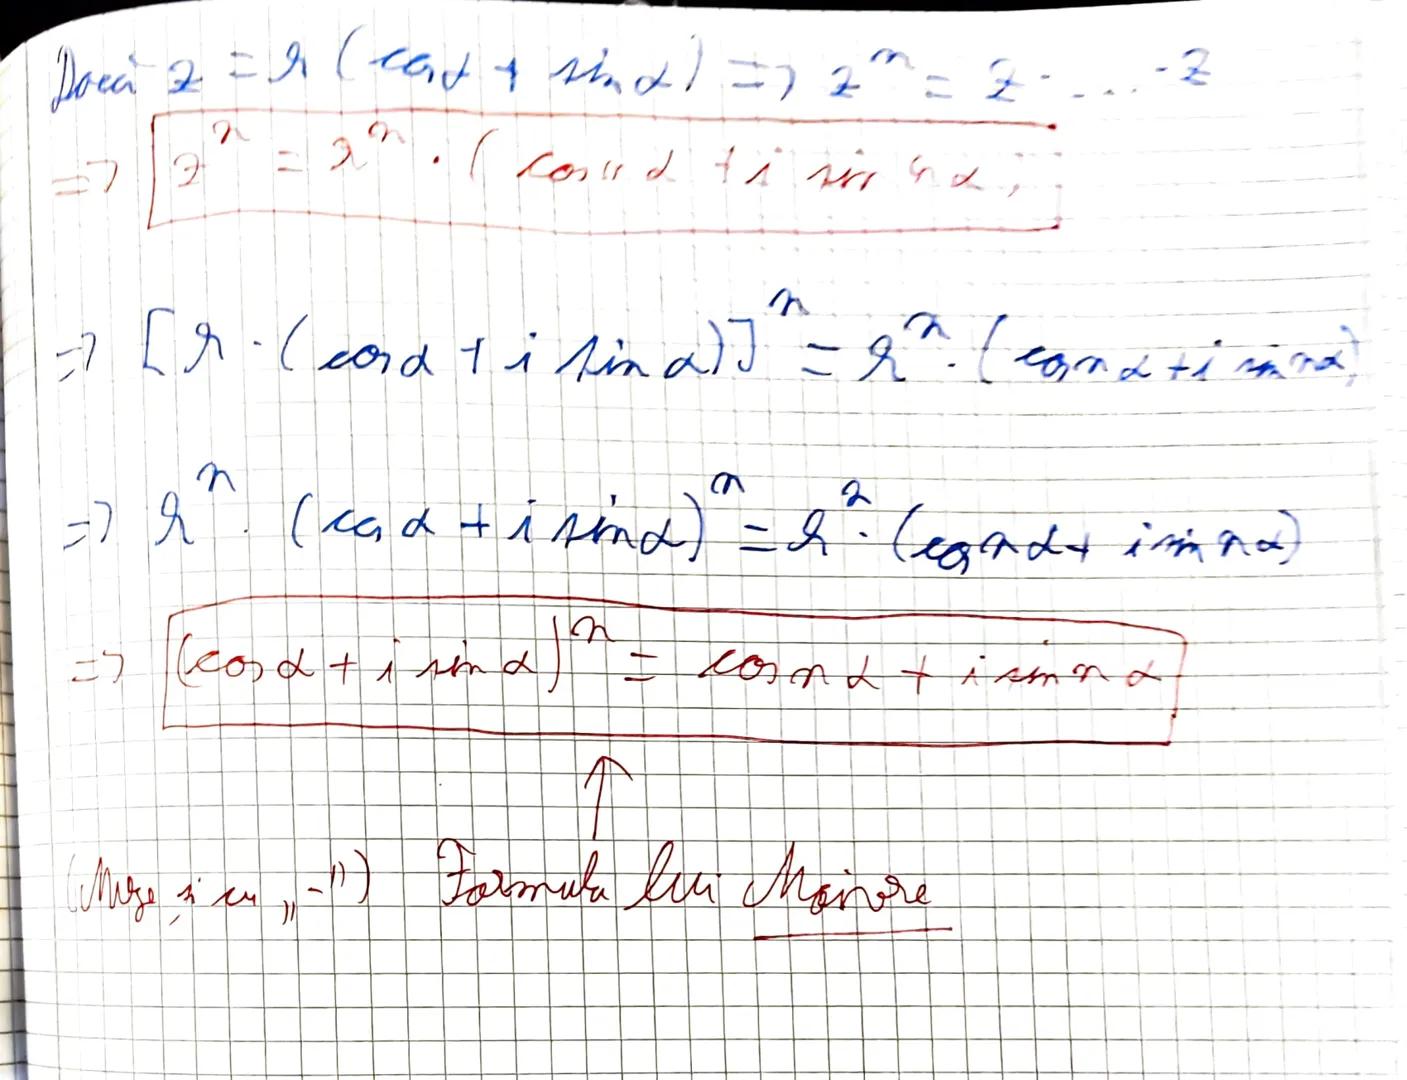 Dacă z = r (cos α + sin α) => z^n = z · ... · z
=> z^n = r^n · (cos n α + i sin n α)
=> [r · (cos α + i sin α)]^n = r^n · (cos n α + i sin n α)
=> r^n · (cos α + i sin α)^n = r^n · (cos n α + i sin n α)
=> (cos α + i sin α)^n = cos n α + i sin n α
(Merge și cu „-") Formula lui Moivre